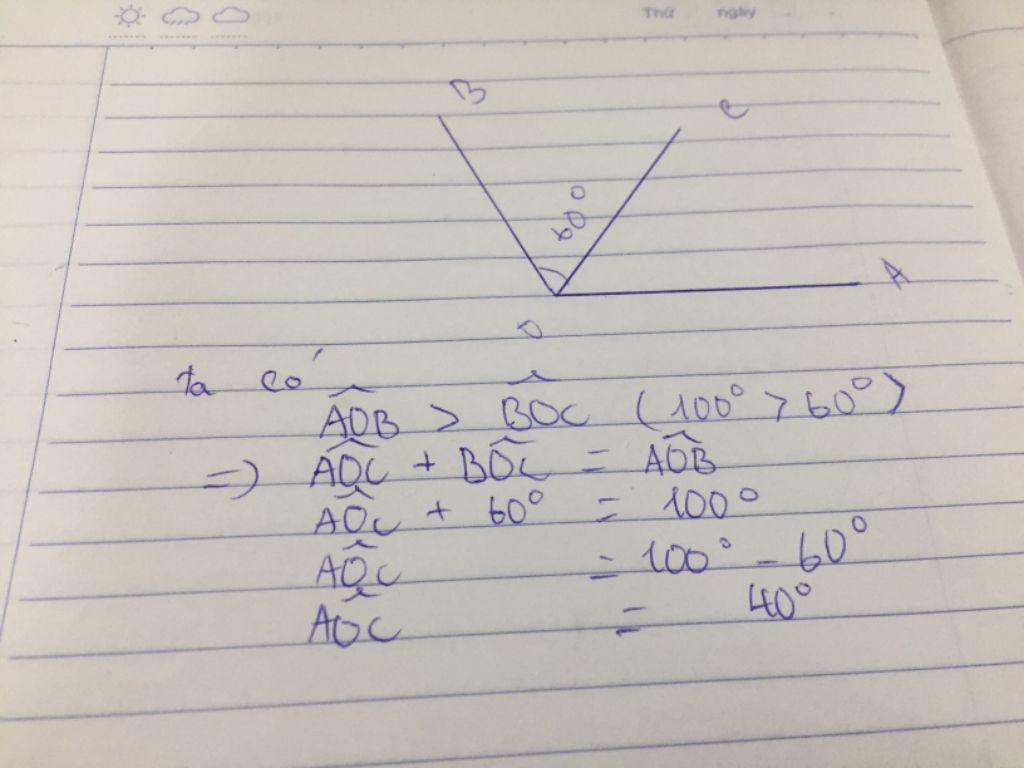 Thứ ngày
B C
60°
A
O
ta có
\widehat{AOB} > \widehat{BOC} (100° > 60°)
=> \widehat{AOC} + \widehat{BOC} = \widehat{AOB}
\widehat{AOC} + 60° = 100°
\widehat{AOC} = 100° - 60°
\widehat{AOC} = 40°